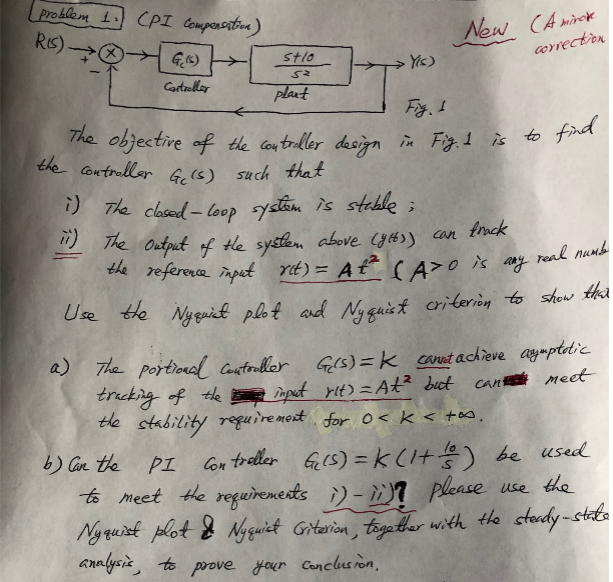 Problem 1. (PI Compensation)
New (A minor
correction
R(s) + − Gc(s) s+10 / s² Y(s)
Controller plant
Fig. 1
The objective of the controller design in Fig. 1 is to find
the controller Gc(s) such that
i) The closed-loop system is stable ;
ii) The output of the system above (y(t)) can track
the reference input r(t) = At² (A>0 is any real numb
Use the Nyquist plot and Nyquist criterion to show that
a) The portional Controller Gc(s) = K cannot achieve asymptotic
tracking of the input r(t) = At² but can meet
the stability requirement for 0 < K < +∞.
b) Can the PI Controller Gc(s) = K(1+10/s) be used
to meet the requirements i)-ii)? please use the
Nyquist plot & Nyquist Criterion, together with the steady-state
analysis, to prove your conclusion.